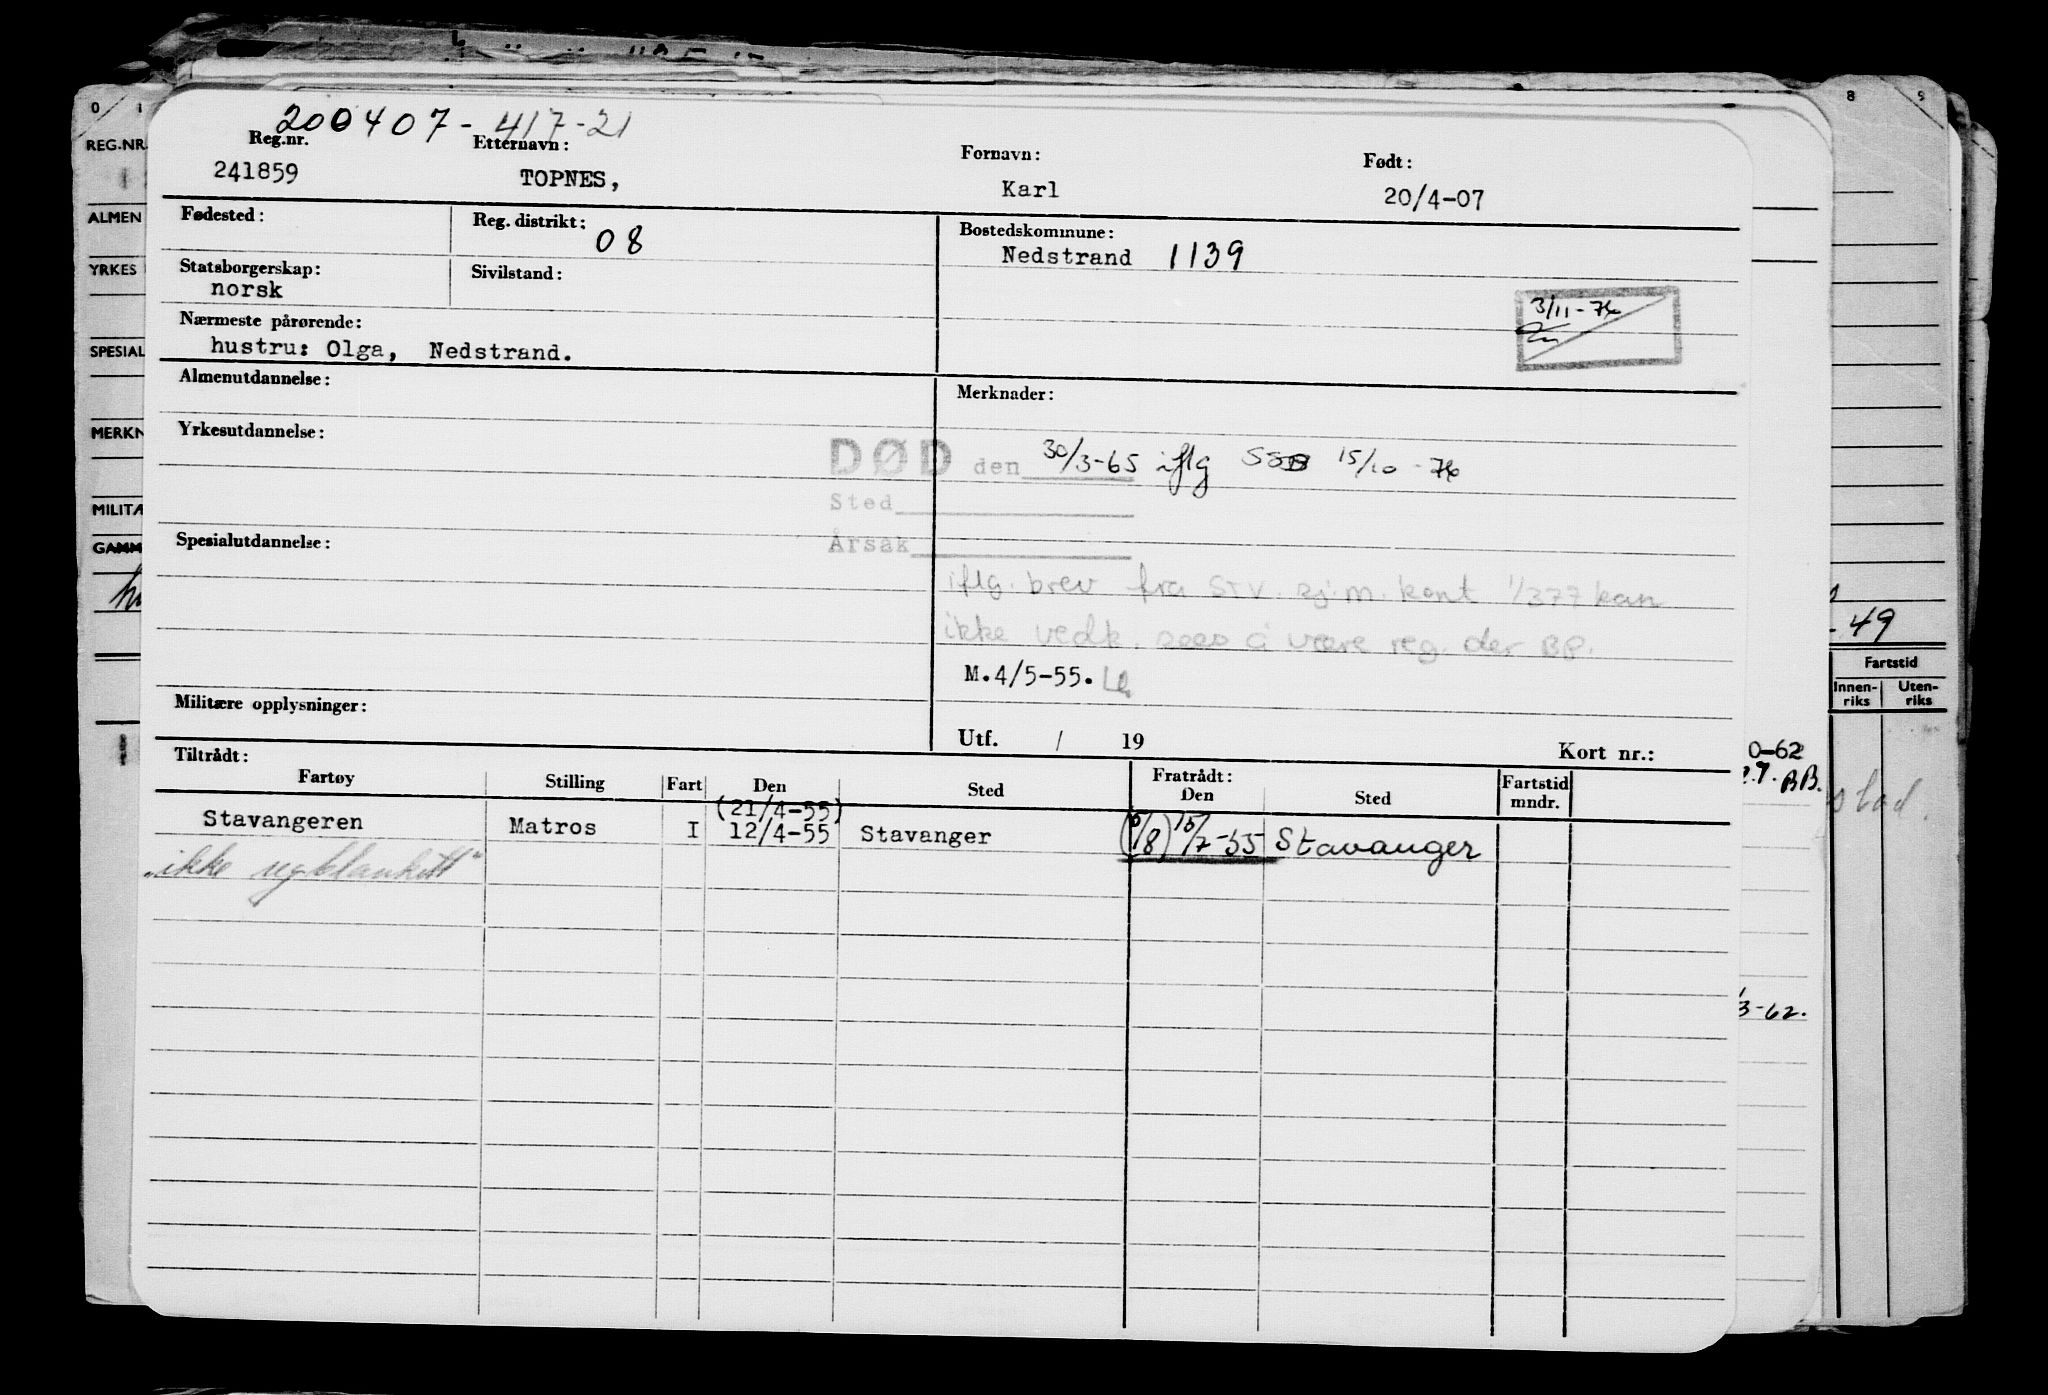 200407-417-21
Reg.nr. Etternavn: Fornavn: Født:
241859 TOPNES, Karl 20/4-07
Fødested: Reg. distrikt: 08 Bostedskommune:
Nedstrand 1139
Statsborgerskap: Sivilstand:
norsk
3/11-76
Nærmeste pårørende:
hustru: Olga, Nedstrand.
Almenutdannelse: Merknader:
Yrkesutdannelse:
DØD den 30/3-65 iflg SSB 15/10-76
Sted
Årsak
Spesialutdannelse:
iflg. brev fra STV. sj.m. kont 1/377 kan
ikke vedk. sees å være reg. der BP.
M.4/5-55.
Militære opplysninger:
Utf. / 19 Kort nr.:
Tiltrådt: Fratrådt:
Fartøy Stilling Fart Den Sted Den Sted Fartstid mndr.
(21/4-55)
Stavangeren Matros I 12/4-55 Stavanger 15/7-55 Stavanger
"ikke
0 1 8 9
REG.NR.
ALMEN
YRKES
SPESIAL
MERKN
MILITÆ
GAMM
-49
Fartstid
Innen-riks Uten-riks
0-62
BB.
3-62.